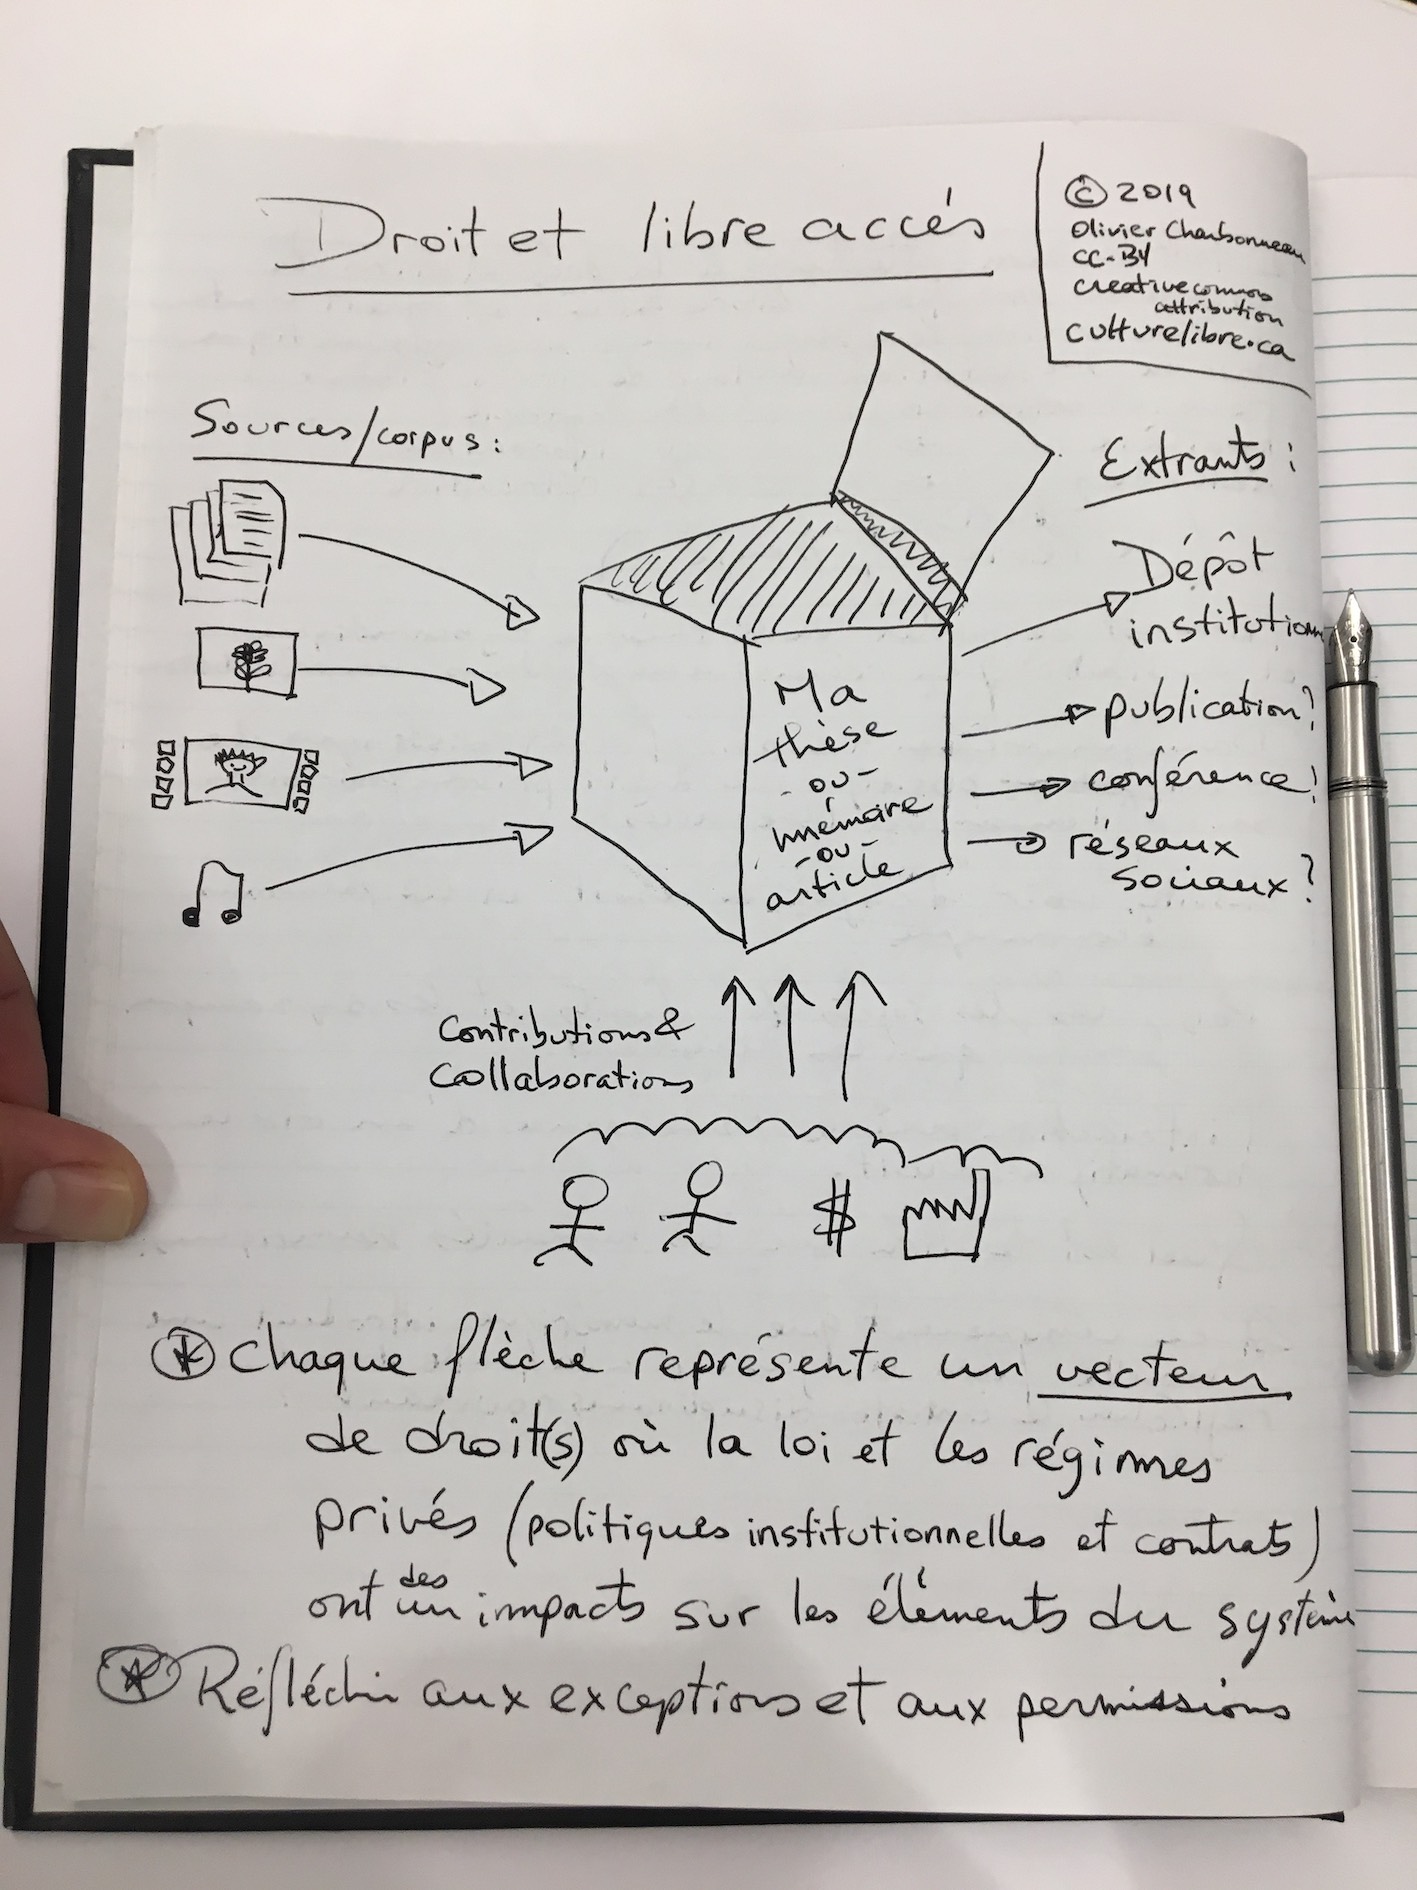 Droit et libre accés
© 2019
Olivier Charbonneau
CC-BY
creative commons
attribution
culturelibre.ca
Sources/corpus :
Extrants :
Dépôt
institutionn
publication?
conférence?
réseaux
sociaux?
Ma
thèse
-ou-
mémoire
-ou-
article
Contributions &
Collaborations
$
Chaque flèche représente un vecteur
de droit(s) où la loi et les régimes
privés (politiques institutionnelles et contrats)
des
ont un impacts sur les éléments du système
Réfléchir aux exceptions et aux permissions